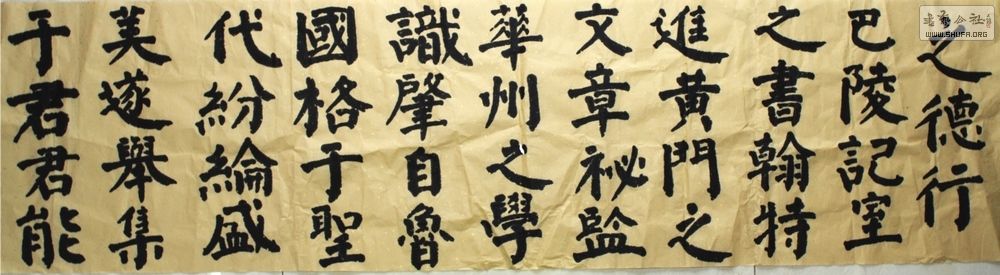 之德行
巴陵記室
之書翰特
進黃門之
文章祕監
華州之學
識肇自魯
國格于聖
代紛綸盛
美遂舉集
于君君能
書法公社
WWW.SHUFA.ORG